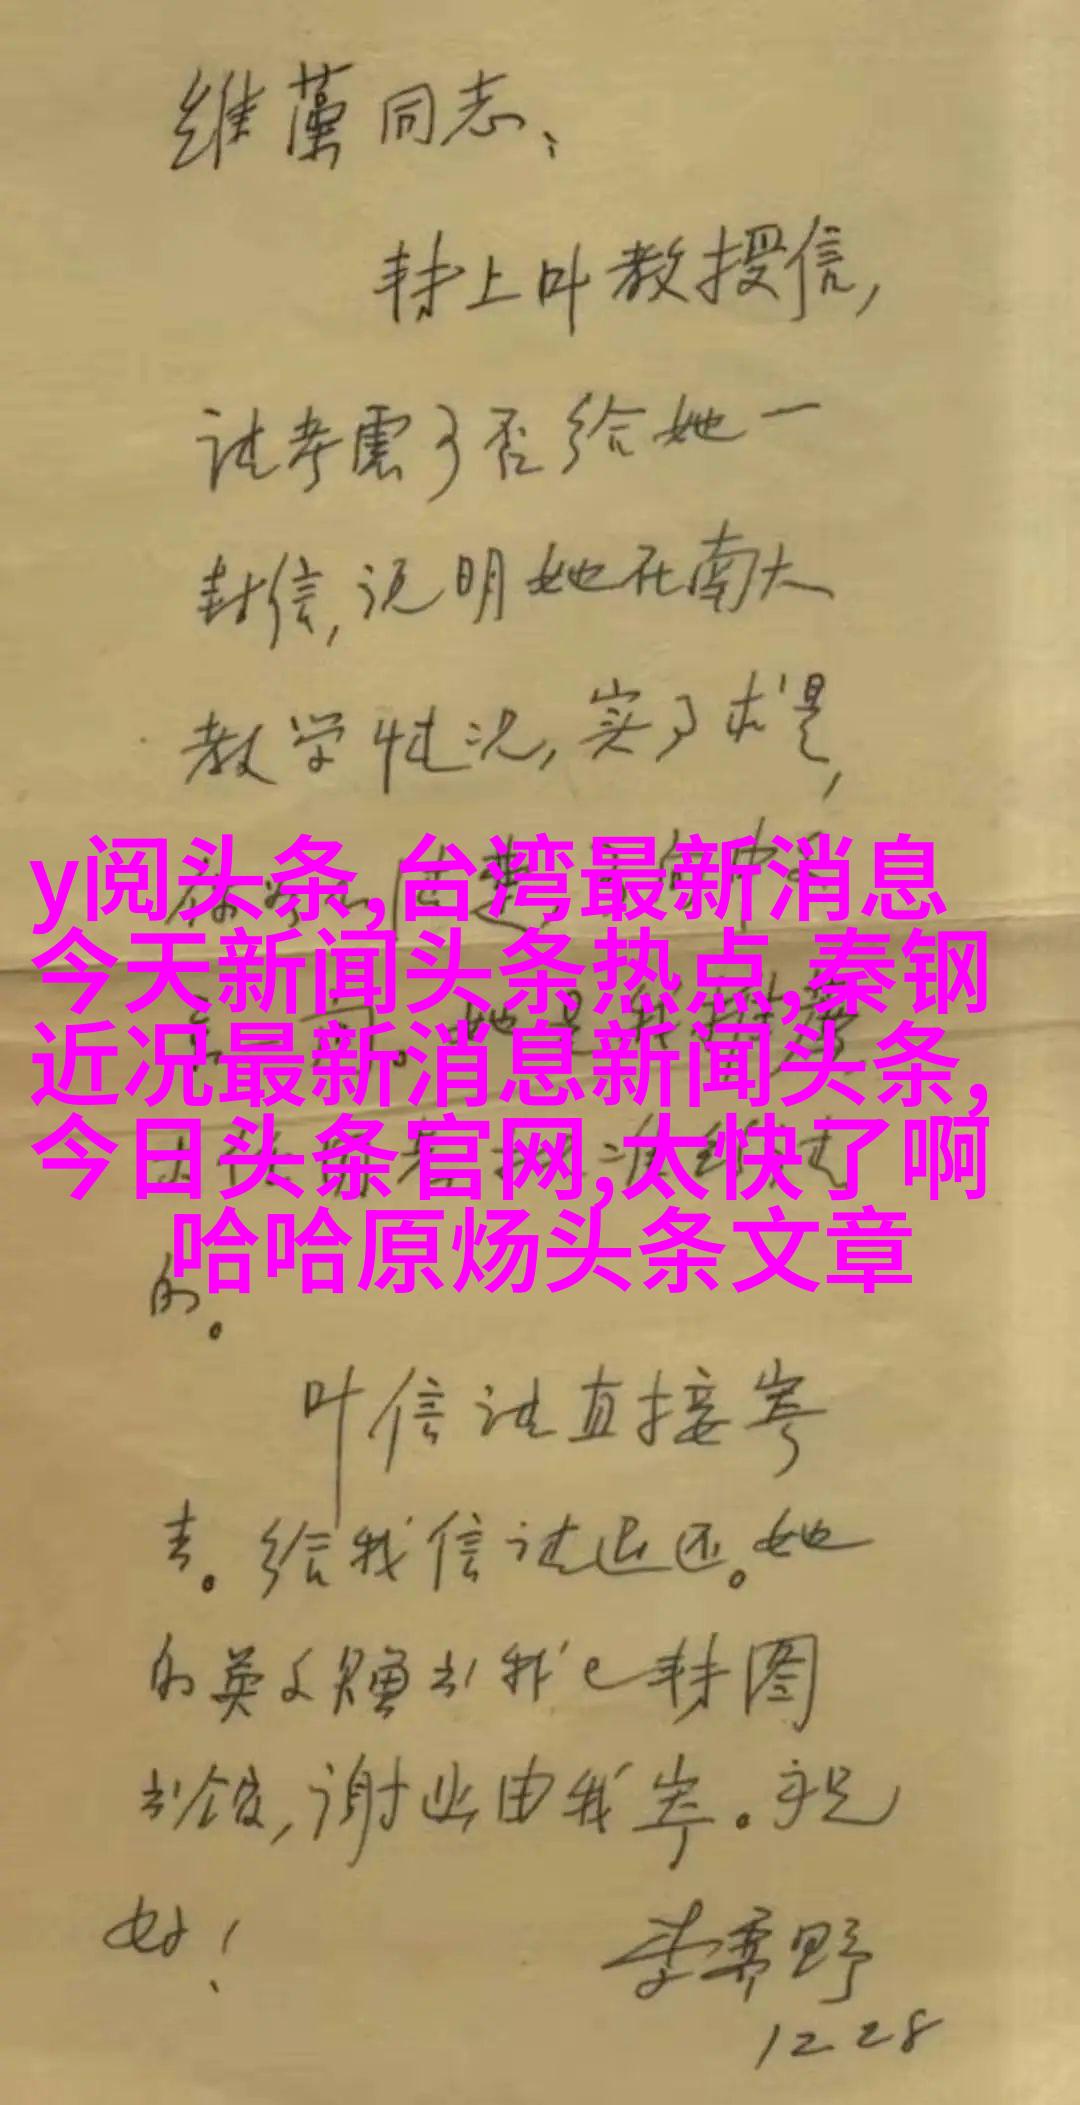 维藻同志：
转上叶教授信，
请考虑可否给她一
封信，说明她在南大
教学情况，实事求是，
y阅头条,台湾最新消息
今天新闻头条热点,秦钢
近况最新消息新闻头条,
今日头条官网,太快了啊
哈哈原炀头条文章
的。
叶信请直接寄
去。给我信请退还。她
的英文赠书我已转图
书馆，谢此由我寄。祝
好！
李霁野
12 28